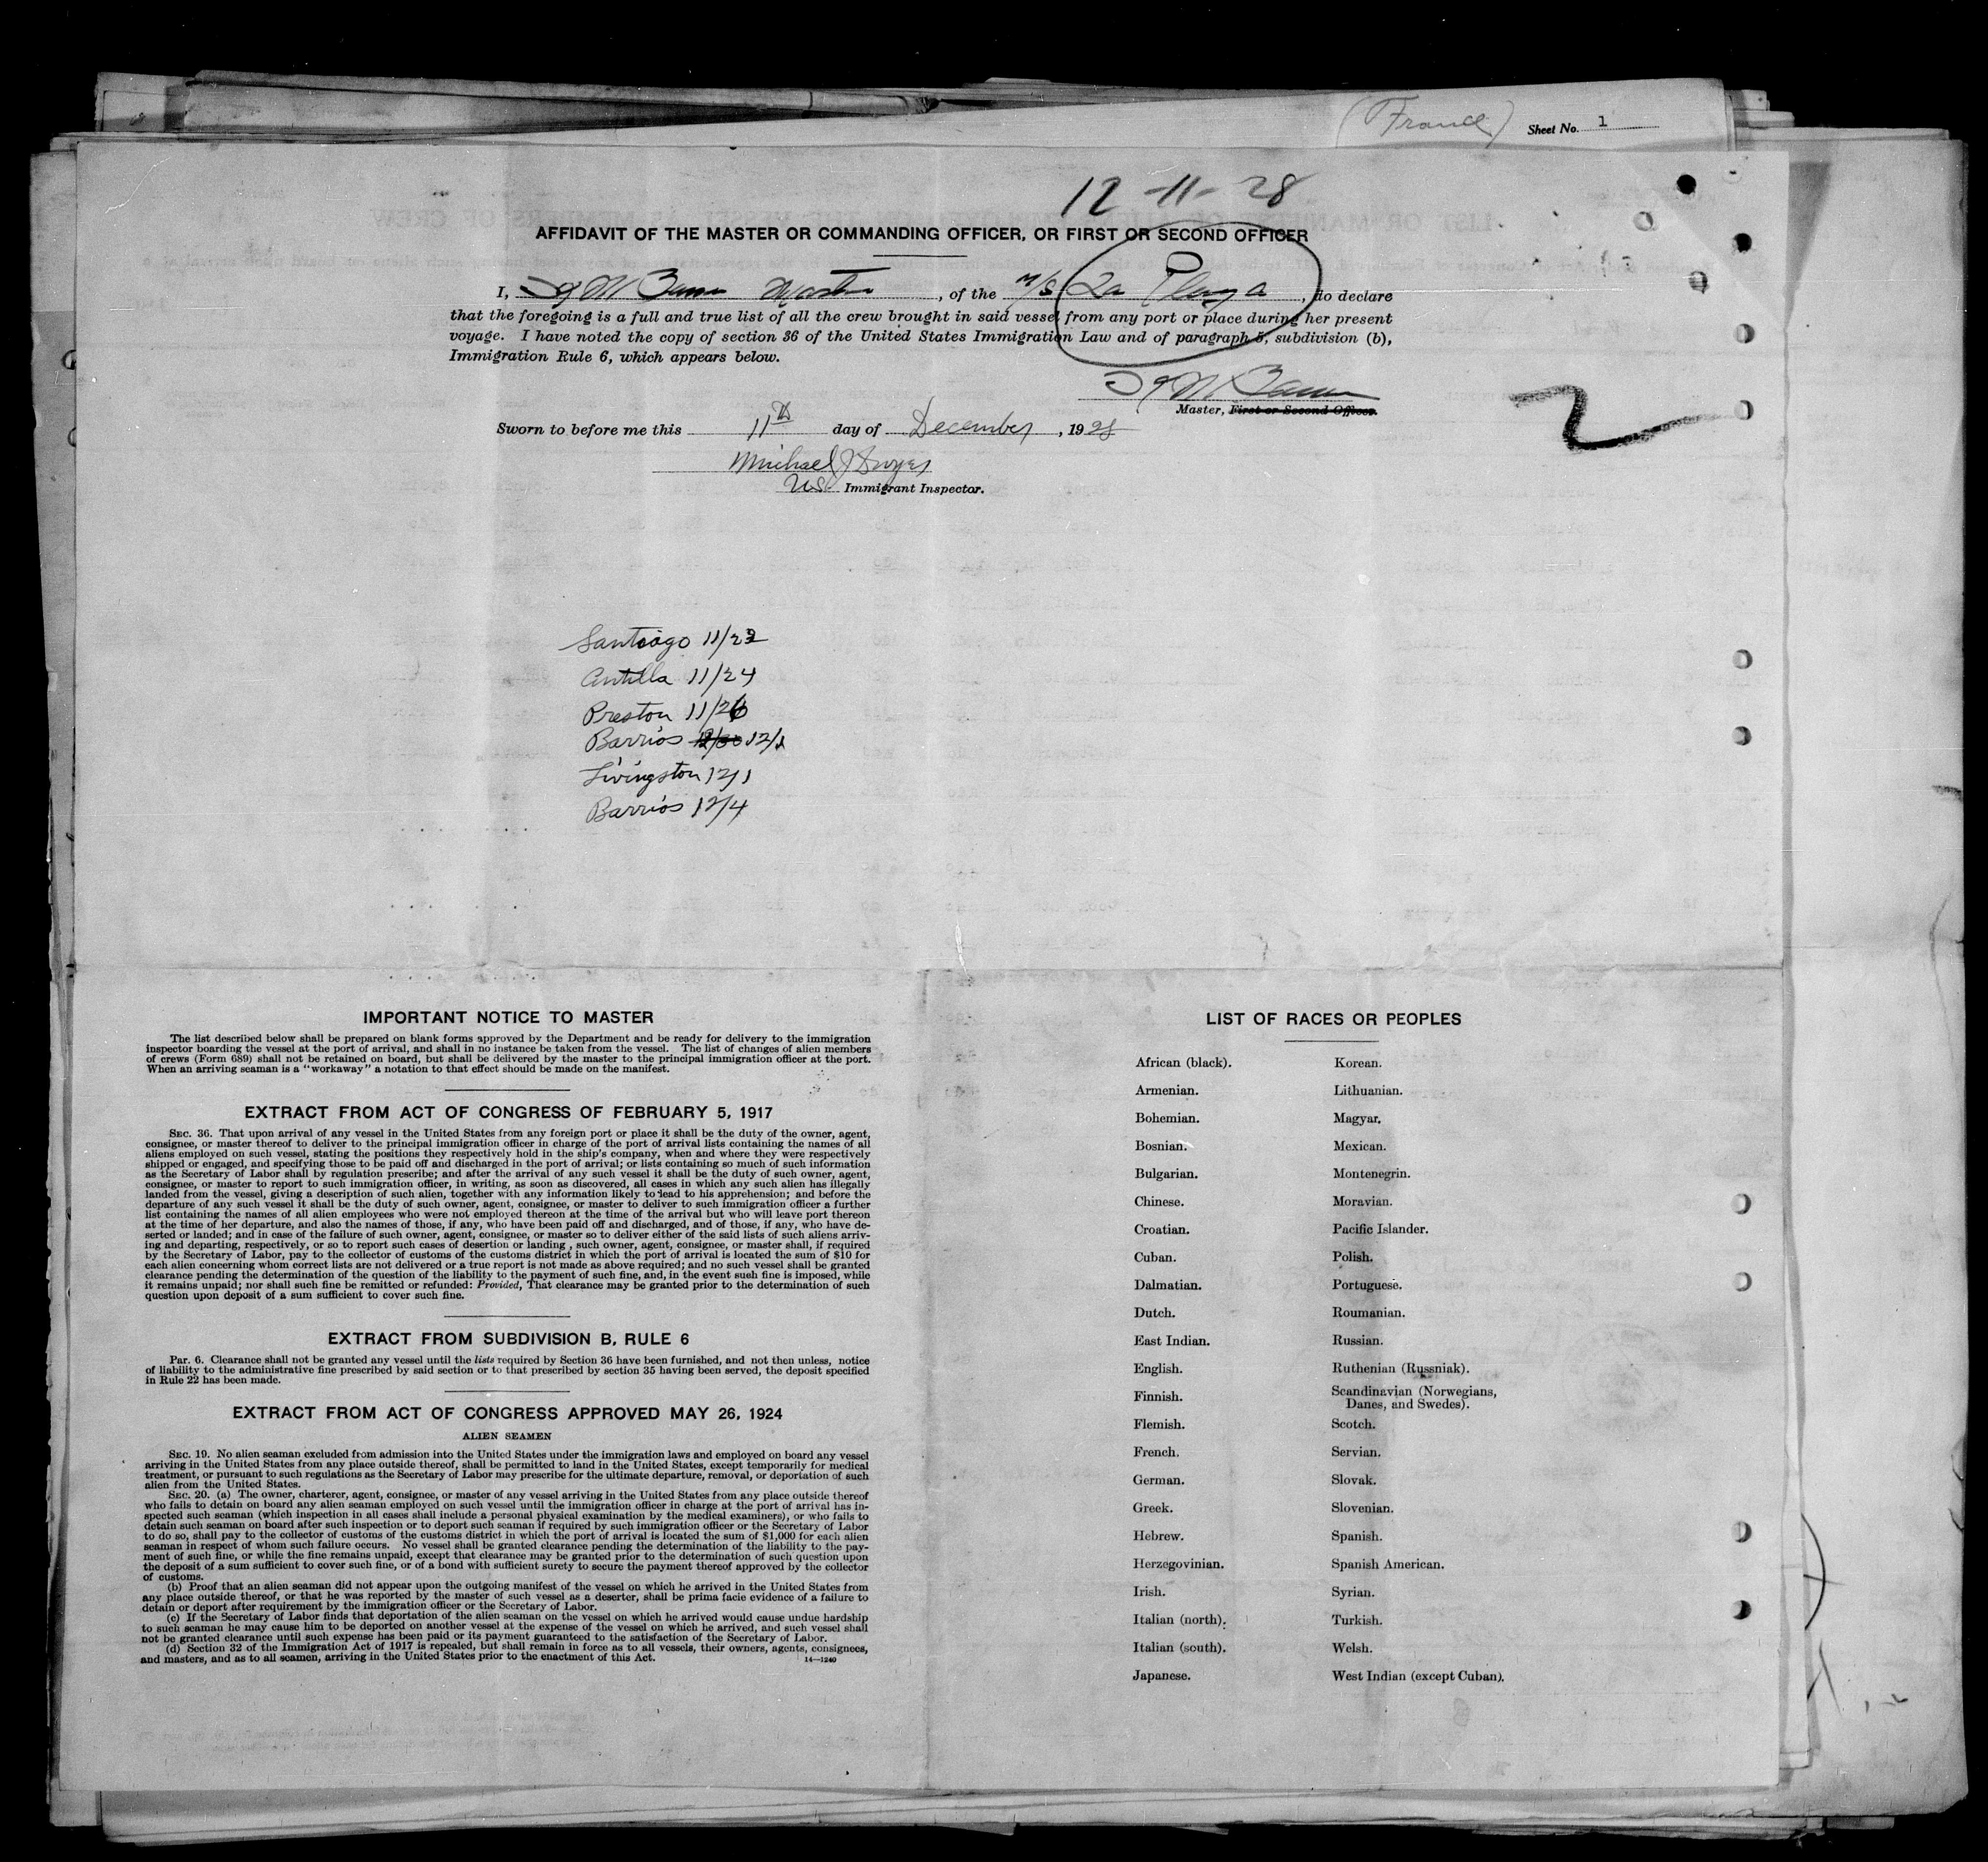 (France)
Sheet No. 1
12-11-28
AFFIDAVIT OF THE MASTER OR COMMANDING OFFICER, OR FIRST OR SECOND OFFICER
I, Master, of the M/S La Playa, do declare
that the foregoing is a full and true list of all the crew brought in said vessel from any port or place during her present
voyage. I have noted the copy of section 36 of the United States Immigration Law and of paragraph 5, subdivision (b),
Immigration Rule 6, which appears below.
Master, First or Second Officer.
2
Sworn to before me this 11th day of December, 1928
Michael J Dwyer
US Immigrant Inspector.
Santiago 11/23
Antilla 11/24
Preston 11/26
Barrios 12/1
Livingston 12/1
Barrios 12/4
IMPORTANT NOTICE TO MASTER
The list described below shall be prepared on blank forms approved by the Department and be ready for delivery to the immigration
inspector boarding the vessel at the port of arrival, and shall in no instance be taken from the vessel. The list of changes of alien members
of crews (Form 689) shall not be retained on board, but shall be delivered by the master to the principal immigration officer at the port.
When an arriving seaman is a "workaway" a notation to that effect should be made on the manifest.
EXTRACT FROM ACT OF CONGRESS OF FEBRUARY 5, 1917
SEC. 36. That upon arrival of any vessel in the United States from any foreign port or place it shall be the duty of the owner, agent,
consignee, or master thereof to deliver to the principal immigration officer in charge of the port of arrival lists containing the names of all
aliens employed on such vessel, stating the positions they respectively hold in the ship's company, when and where they were respectively
shipped or engaged, and specifying those to be paid off and discharged in the port of arrival; or lists containing so much of such information
as the Secretary of Labor shall by regulation prescribe; and after the arrival of any such vessel it shall be the duty of such owner, agent,
consignee, or master to report to such immigration officer, in writing, as soon as discovered, all cases in which any such alien has illegally
landed from the vessel, giving a description of such alien, together with any information likely to lead to his apprehension; and before the
departure of any such vessel it shall be the duty of such owner, agent, consignee, or master to deliver to such immigration officer a further
list containing the names of all alien employees who were not employed thereon at the time of the arrival but who will leave port thereon
at the time of her departure, and also the names of those, if any, who have been paid off and discharged, and of those, if any, who have de-
serted or landed; and in case of the failure of such owner, agent, consignee, or master so to deliver either of the said lists of such aliens arriv-
ing and departing, respectively, or so to report such cases of desertion or landing , such owner, agent, consignee, or master shall, if required
by the Secretary of Labor, pay to the collector of customs of the customs district in which the port of arrival is located the sum of $10 for
each alien concerning whom correct lists are not delivered or a true report is not made as above required; and no such vessel shall be granted
clearance pending the determination of the question of the liability to the payment of such fine, and, in the event such fine is imposed, while
it remains unpaid; nor shall such fine be remitted or refunded: Provided, That clearance may be granted prior to the determination of such
question upon deposit of a sum sufficient to cover such fine.
EXTRACT FROM SUBDIVISION B, RULE 6
Par. 6. Clearance shall not be granted any vessel until the lists required by Section 36 have been furnished, and not then unless, notice
of liability to the administrative fine prescribed by said section or to that prescribed by section 35 having been served, the deposit specified
in Rule 22 has been made.
EXTRACT FROM ACT OF CONGRESS APPROVED MAY 26, 1924
ALIEN SEAMEN
SEC. 19. No alien seaman excluded from admission into the United States under the immigration laws and employed on board any vessel
arriving in the United States from any place outside thereof, shall be permitted to land in the United States, except temporarily for medical
treatment, or pursuant to such regulations as the Secretary of Labor may prescribe for the ultimate departure, removal, or deportation of such
alien from the United States.
SEC. 20. (a) The owner, charterer, agent, consignee, or master of any vessel arriving in the United States from any place outside thereof
who fails to detain on board any alien seaman employed on such vessel until the immigration officer in charge at the port of arrival has in-
spected such seaman (which inspection in all cases shall include a personal physical examination by the medical examiners), or who fails to
detain such seaman on board after such inspection or to deport such seaman if required by such immigration officer or the Secretary of Labor
to do so, shall pay to the collector of customs of the customs district in which the port of arrival is located the sum of $1,000 for each alien
seaman in respect of whom such failure occurs. No vessel shall be granted clearance pending the determination of the liability to the pay-
ment of such fine, or while the fine remains unpaid, except that clearance may be granted prior to the determination of such question upon
the deposit of a sum sufficient to cover such fine, or of a bond with sufficient surety to secure the payment thereof approved by the collector
of customs.
(b) Proof that an alien seaman did not appear upon the outgoing manifest of the vessel on which he arrived in the United States from
any place outside thereof, or that he was reported by the master of such vessel as a deserter, shall be prima facie evidence of a failure to
detain or deport after requirement by the immigration officer or the Secretary of Labor.
(c) If the Secretary of Labor finds that deportation of the alien seaman on the vessel on which he arrived would cause undue hardship
to such seaman he may cause him to be deported on another vessel at the expense of the vessel on which he arrived, and such vessel shall
not be granted clearance until such expense has been paid or its payment guaranteed to the satisfaction of the Secretary of Labor.
(d) Section 32 of the Immigration Act of 1917 is repealed, but shall remain in force as to all vessels, their owners, agents, consignees,
and masters, and as to all seamen, arriving in the United States prior to the enactment of this Act.
14—1240
LIST OF RACES OR PEOPLES
African (black).
Armenian.
Bohemian.
Bosnian.
Bulgarian.
Chinese.
Croatian.
Cuban.
Dalmatian.
Dutch.
East Indian.
English.
Finnish.
Flemish.
French.
German.
Greek.
Hebrew.
Herzegovinian.
Irish.
Italian (north).
Italian (south).
Japanese.
Korean.
Lithuanian.
Magyar.
Mexican.
Montenegrin.
Moravian.
Pacific Islander.
Polish.
Portuguese.
Roumanian.
Russian.
Ruthenian (Russniak).
Scandinavian (Norwegians,
Danes, and Swedes).
Scotch.
Servian.
Slovak.
Slovenian.
Spanish.
Spanish American.
Syrian.
Turkish.
Welsh.
West Indian (except Cuban).